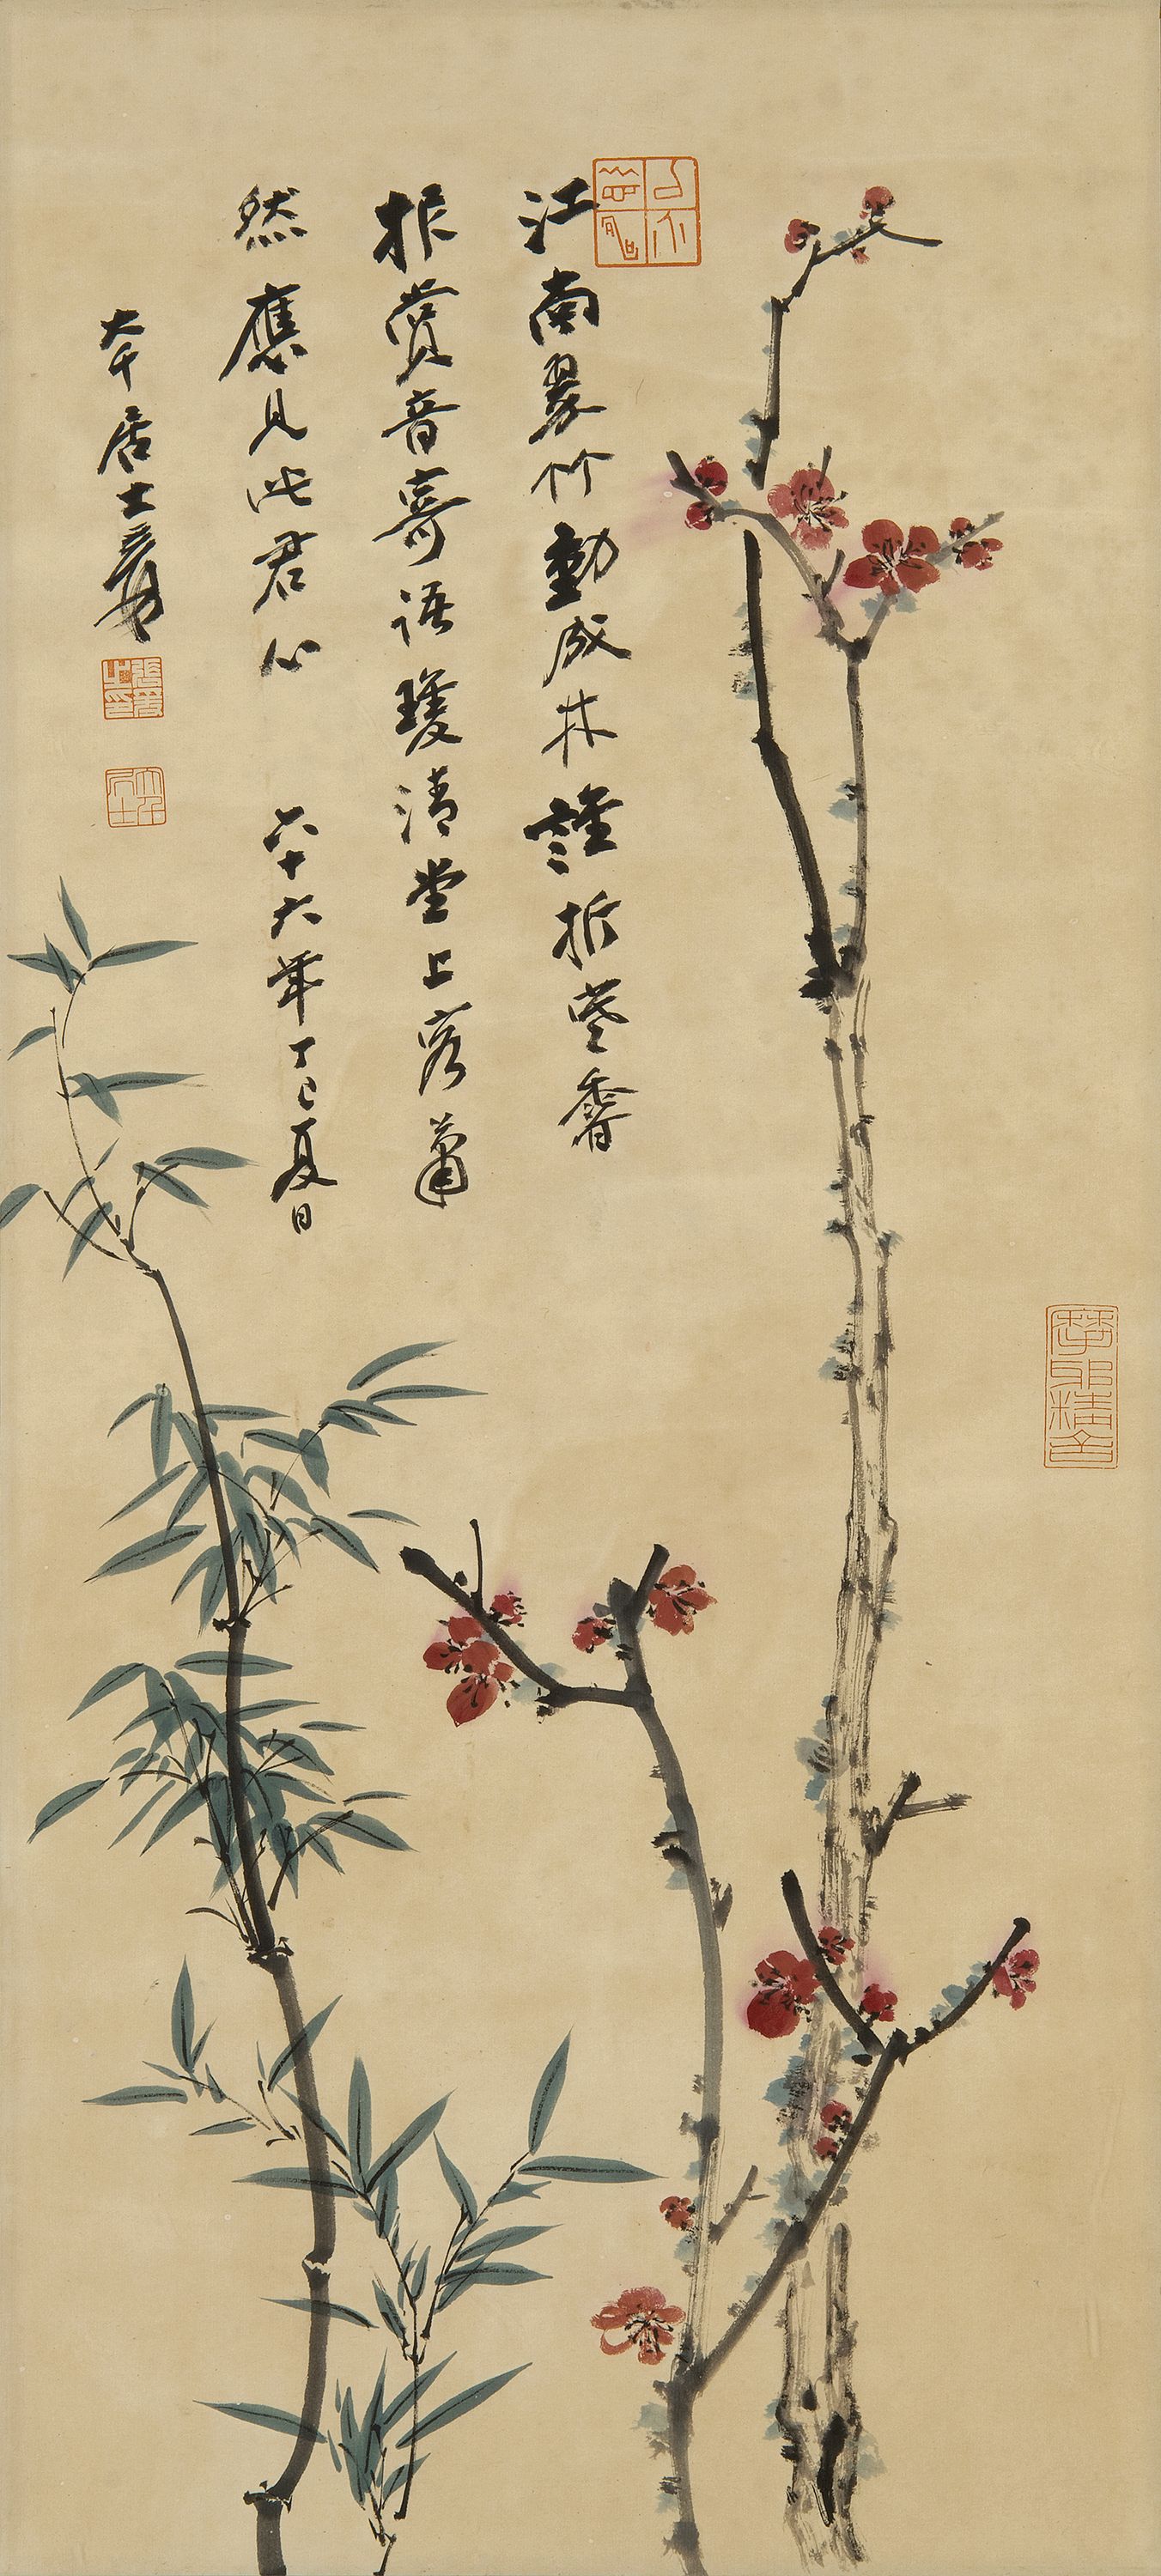 江南翠竹動成林誰折香
抵賞音寄語瓊清堂上客蕭
然應見此君心 六十六年丁巳夏日
大千居士爰
張爰之印
大千居士
摩耶精舍